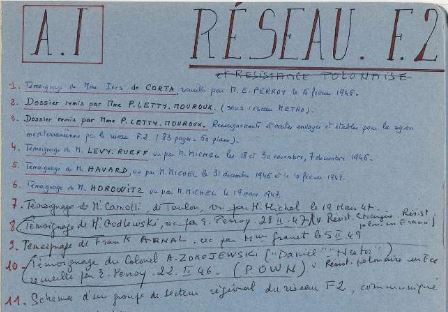 A.I
RÉSEAU. F.2
et RESISTANCE POLONAISE
1. Témoignage de Mme Inès de CORTA, recueilli par M. E. PERROY le 6 février 1946.
2. Dossier remis par Mme P. LETTY. MOUROUX. (sous-réseau METRO).
3. Dossier remis par Mme P. LETTY. MOUROUX. Renseignements et notes envoyés et établis pour la région
méditerranéenne par le réseau F.2. (83 pages. 50 plans).
4. Témoignage de M. LEVY. RUEFF vu par M. MICHEL les 18 et 30 novembre, 7 décembre 1946.
5. Témoignage de M. HAVARD, vu par M. MICHEL le 31 décembre 1946 et le 4 février 1947.
6. Témoignage de M. HOROWITZ vu par M. MICHEL le 19 mars 1947.
7. Témoignage de M. Camolli de Toulon, vu par M. Michel le 19 Mars 47.
8. Témoignage de M. Godlewski, vu par E. Perroy 28 II 47 (v Resist. Etrangère Résist. polon. en France)
9. Témoignage de Frank ARNAL. vu par Mme Granet le 5 II 49
10. Témoignage du Colonel A. ZDROJEWSKI ("Daniel" "Nestor")
recueilli par E. Perroy. 22. I 46. (POWN) v Résist. polonaise en Fce
11. Schéma d'un groupe de secteur régional du réseau F2, communiqué